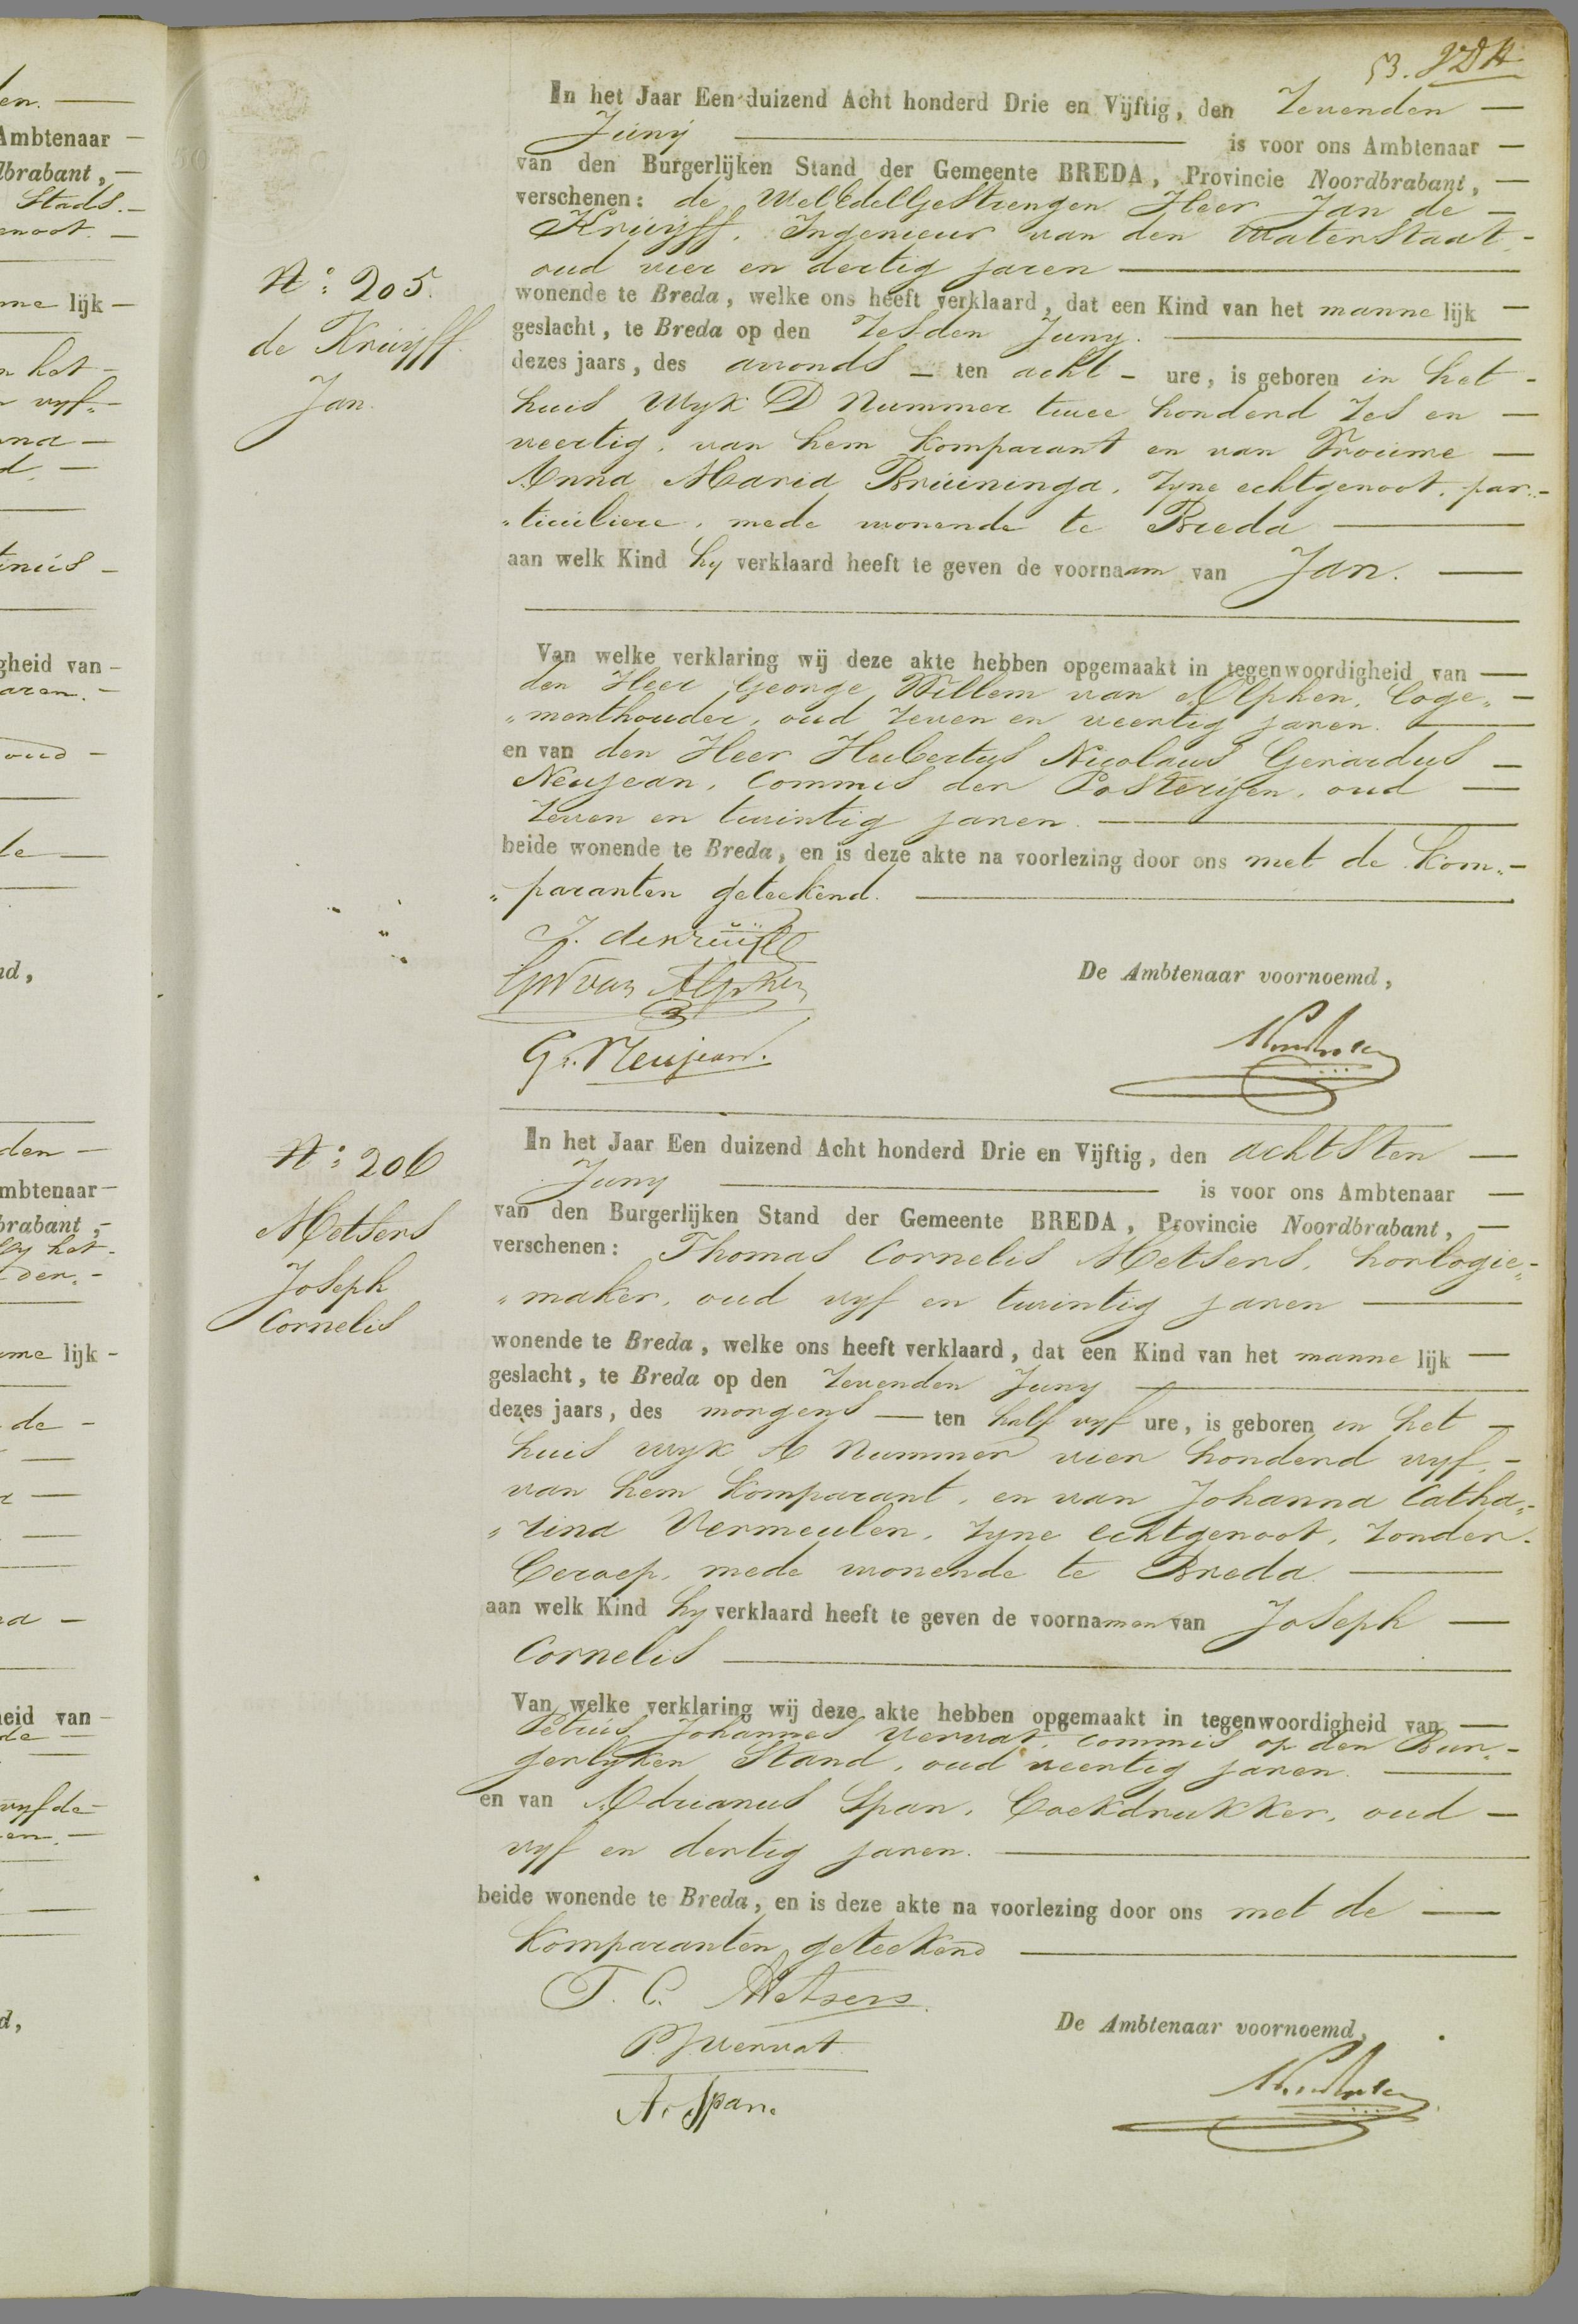 53. JDH
In het Jaar Een duizend Acht honderd Drie en Vijftig, den Zevenden —
Junij — is voor ons Ambtenaar —
van den Burgerlijken Stand der Gemeente BREDA, Provincie Noordbrabant, —
verschenen: de WelEdelGestrengen Heer Jan de —
Kruijff, Ingenieur van den Waterstaat, -
oud vier en dertig jaren —
wonende te Breda, welke ons heeft verklaard, dat een Kind van het manne lijk —
geslacht, te Breda op den Zesden Juny. —
dezes jaars, des avonds — ten acht - ure, is geboren in het -
huis Wyk D Nummer twee honderd Zes en —
veertig, van hem Komparant en van Vrouwe —
Anna Maria Bruininga, Zyne echtgenoot, par„-
„ticuliere, mede wonende te Breda —
aan welk Kind hy verklaard heeft te geven de voornaam van Jan. —
Van welke verklaring wij deze akte hebben opgemaakt in tegenwoordigheid van —
den Heer George Willem van Alphen, Loge„ -
„menthouder, oud Zeven en veertig jaren. —
en van den Heer Hubertus Nicolaus Gerardus —
Neujean, Commis der Posterijen, oud —
Zeven en twintig jaren. —
beide wonende te Breda, en is deze akte na voorlezing door ons met de Kom„-
„paranten geteekend. —
J. de Kruijff
GW van Alphen
G. Neujean.
De Ambtenaar voornoemd,
No: 205.
de Kruijff
Jan.
In het Jaar Een duizend Acht honderd Drie en Vijftig, den achtsten —
Juny — is voor ons Ambtenaar —
van den Burgerlijken Stand der Gemeente BREDA, Provincie Noordbrabant, —
verschenen: Thomas Cornelis Metsers, horlogie„-
„maker, oud vyf en twintig jaren —
wonende te Breda, welke ons heeft verklaard, dat een Kind van het manne lijk —
geslacht, te Breda op den Zevenden Juny —
dezes jaars, des morgens — ten half vyf ure, is geboren in het —
huis wyk A Nummer vier honderd vyf, -
van hem Komparant, en van Johanna Catha„-
„rina Vermeulen, Zyne echtgenoot, Zonder -
Beroep, mede wonende te Breda. —
aan welk Kind hy verklaard heeft te geven de voornamen van Joseph —
Cornelis —
Van welke verklaring wij deze akte hebben opgemaakt in tegenwoordigheid van —
Petrus Johannes Vervat, commis op den Bur„-
gerlyken Stand, oud veertig jaren. —
en van Adrianus Span, Boekdrukker, oud —
vyf en dertig jaren. —
beide wonende te Breda, en is deze akte na voorlezing door ons met de —
Komparanten geteekend —
T. C. Metsers.
P. J. Vervat.
A. Span.
De Ambtenaar voornoemd,
No: 206
Metsers
Joseph
Cornelis